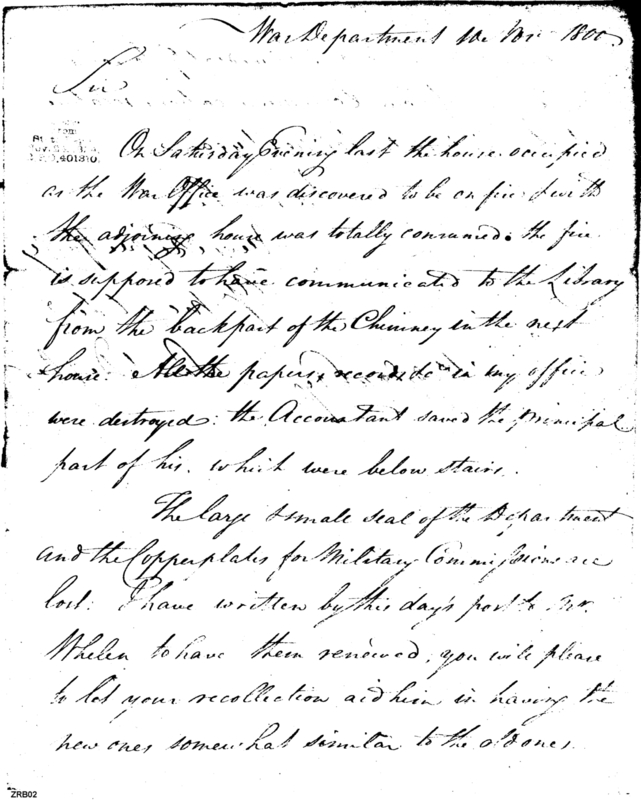 War Department 10 Nov 1800.
Sir
401310
On Saturday Evening last the house occupied
as the War Office was discovered to be on fire & with
the adjoining house was totally consumed. the fire
is supposed to have communicated to the Library
from the backpart of the Chimney in the next
house. All the papers, records, &c in my office
were destroyed: the Accountant saved the principal
part of his. which were below stairs.
The large & small seal of the Department
and the Copperplates for Military Commissions are
lost: I have written by this day's post to Mr.
Whelen to have them renewed, you will please
to let your recollection aid him in having the
new ones somewhat similar to the old ones.
ZRB02